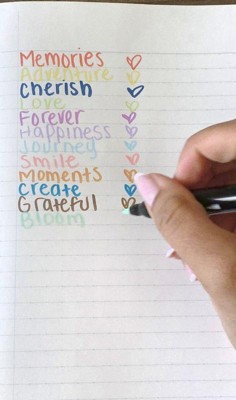 Memories
Adventure
Cherish
Love
Forever
Happiness
Journey
Smile
Moments
Create
Grateful
Bloom